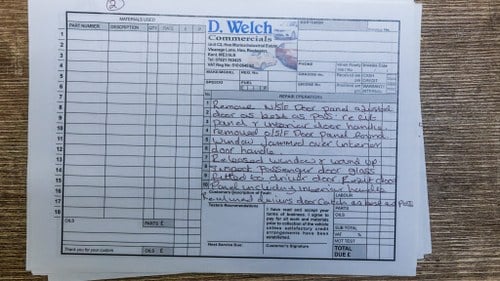 2
MATERIALS USED
PART NUMBER DESCRIPTION QTY RATE £ P
D. Welch
Commercials
Kent,
MAKE/MODEL REG. NO.
SPEEDO FUEL
PHONE
CASH
CREDIT
WARRANTY
REPAIR OPERATIONS
1 Remove N/S/F Door panel adjusted
2 door as best as poss. re fit
3 panel & interior door handle
4 removed O/S/F Door panel found
5 window jammed over interior
6 door handle
7 Released window & wound up
8 inspect passenger door glass
9 fitted to driver door Rebuilt door
10 Panel including interior handle
Customers Description of Fault
Realigned drivers door Catch as best as poss
Technicians Recommendations:
I have read and accept your
terms of business. I agree to
pay for all work and materials
prior to collection of the vehicle
unless satisfactory credit
arrangements have been
established.
Next Service Due:
Customer's Signature
LABOUR
PARTS
OILS
SUB TOTAL
VAT
MOT TEST
TOTAL
DUE £
1
2
3
4
5
6
7
8
9
10
11
12
13
14
15
16
17
18
OILS PARTS £
Thank you for your custom OILS £